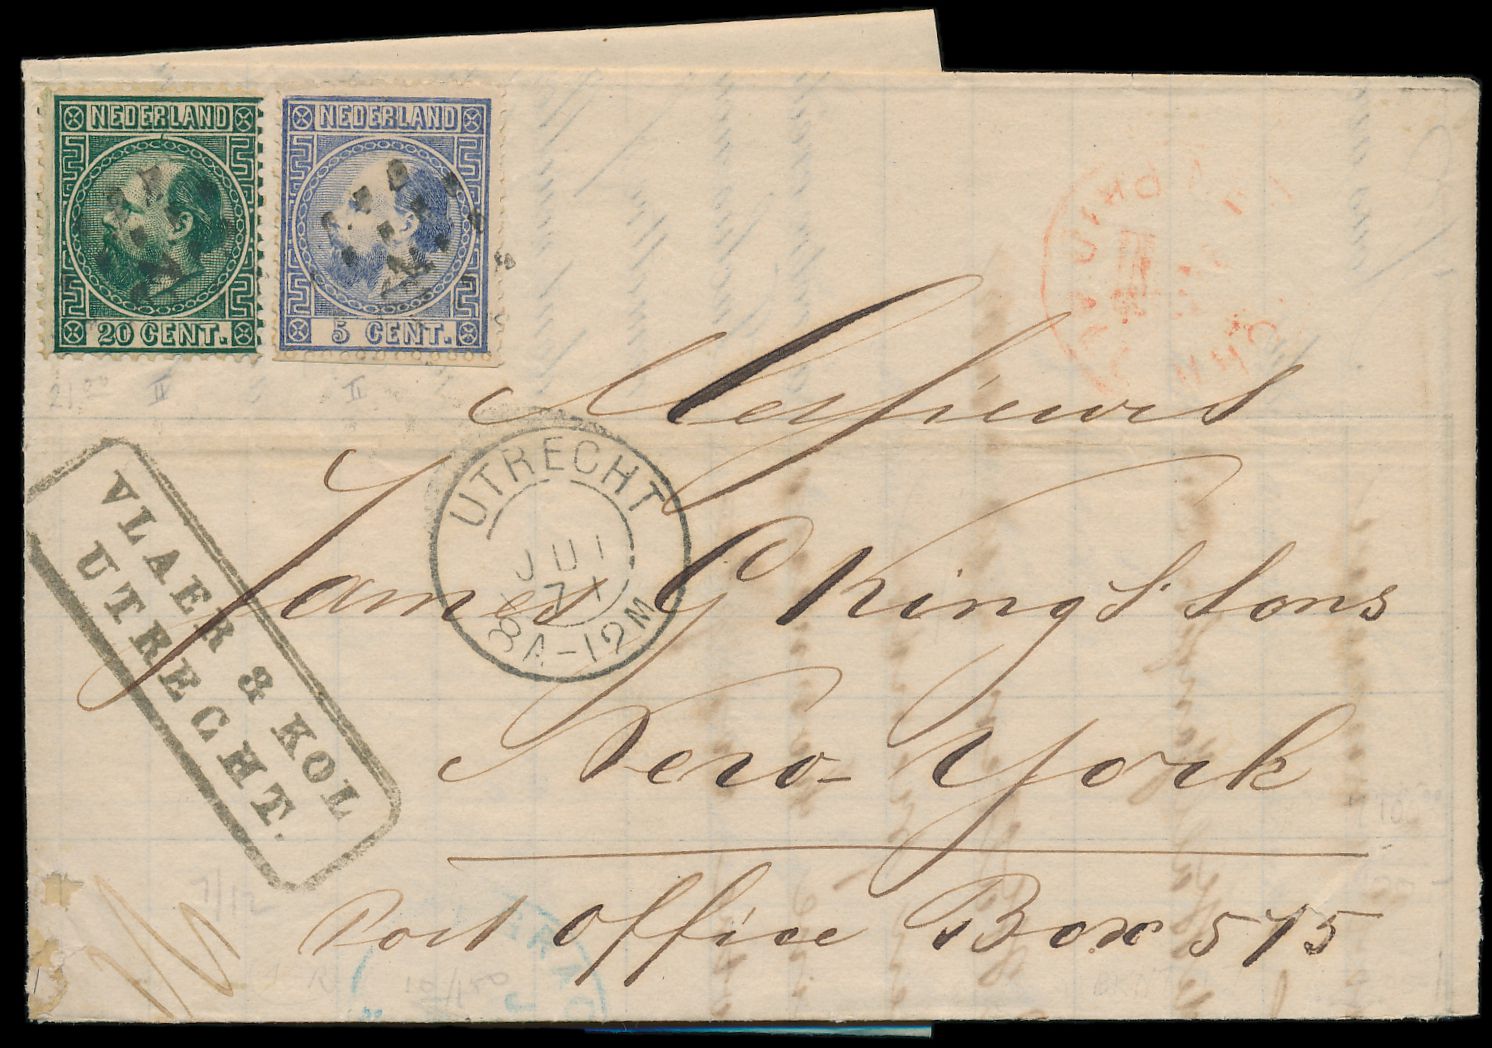 NEDERLAND
20 CENT.
NEDERLAND
5 CENT.
II
II
Messieurs
UTRECHT
JUI
71
8A-12M
James G King & Sons
VLAER & KOL
UTRECHT.
New-York
Post Office Box 575